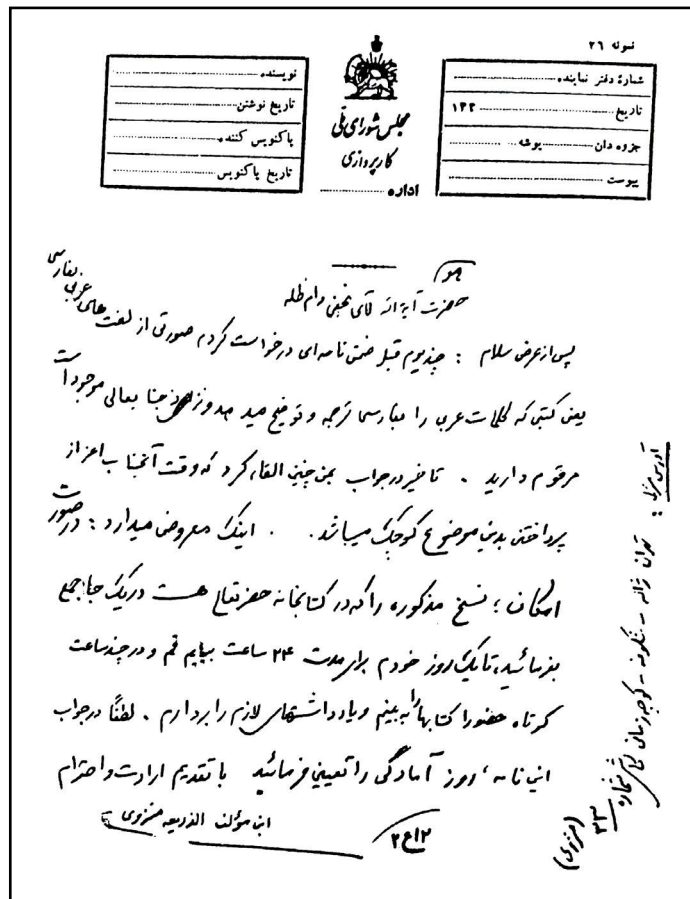 نمونه ۲۶
شمارهٔ دفتر نماینده
تاریخ ۱۴۲
جزوه دان پوشه
پیوست
مجلس شورای ملی
کارپردازی
اداره
نویسنده
تاریخ نوشتن
پاکنویس کننده
تاریخ پاکنویس
هو
حضرت آیة الله آقای نجفی دام ظله
پس از عرض سلام : چند یوم قبل ضمن نامه‌ای درخواست کردم صورتی از لغت‌های عربی بفارسی
یعنی کتبی که کلمات عربی را بفارسی ترجمه و توضیح میدهد و نزد جنابعالی موجود است
مرقوم دارید . تاخیر در جواب بمن چنین القاء کرد که وقت آنجناب اعز از
پرداختن بدین موضوع کوچک میباشد . اینک معروض میدارد : در صورت
امکان ؛ نسخ مذکوره را که در کتابخانه حضرتعالی هست در یک جا جمع
بفرمائید، تا یک روز خودم برای مدت ۲۴ ساعت بیایم قم و در چند ساعت
کوتاه حضورا کتابها را به بینم و یادداشتهای لازم را بردارم . لطفاً در جواب
این نامه ، روز آمادگی را تعیین فرمائید با تقدیم ارادت و احترام
ابن مؤلف الذریعه منزوی
۲/ع۱۲
آدرس منزل :
تهران ژاله - شکوفه - کوچه زمانی شماره
۳۳
(منزوی)